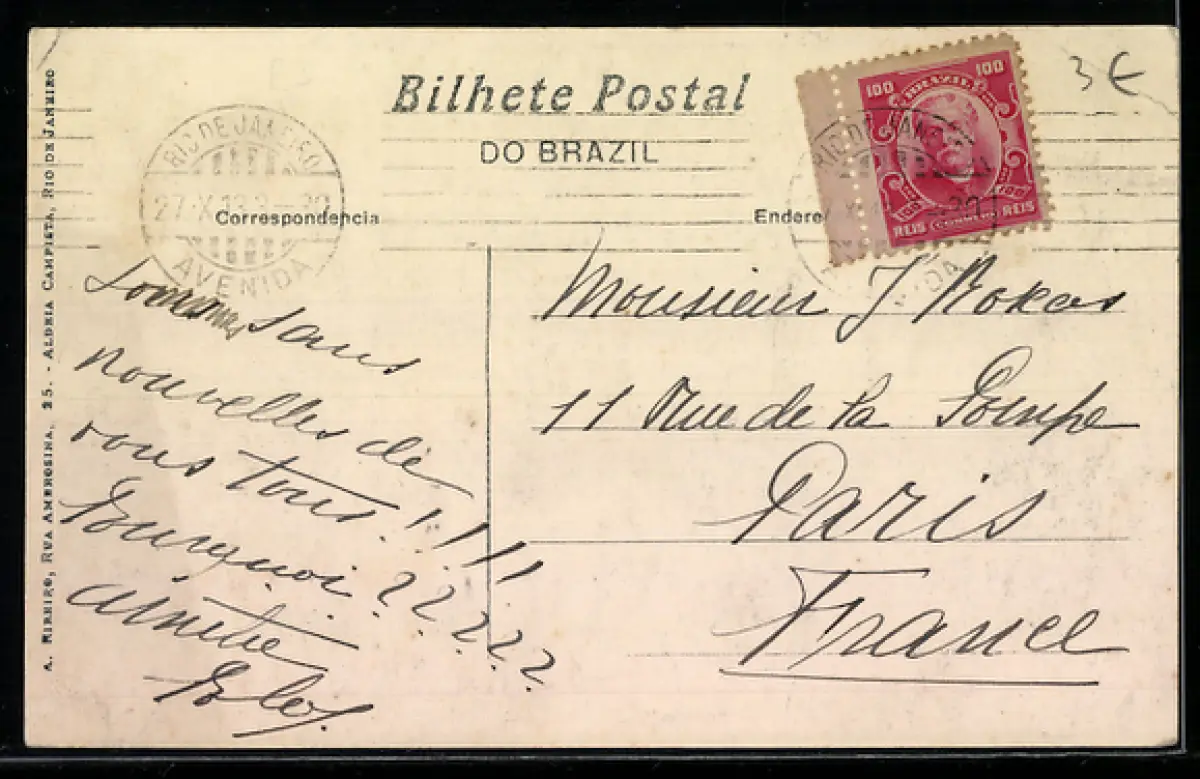 Bilhete Postal
DO BRAZIL
3 €
100 100
BRAZIL
100
REIS CORREIO REIS
RIO DE JANEIRO
27 · X 13 3-30
AVENIDA
Correspondencia
Endere
A. RIBEIRO, RUA AMBROSINA, 25. - ALDEIA CAMPISTA, RIO DE JANEIRO
Sommes sans
nouvelles de
vous tous!!!!
Pourquoi ?????
Amitié
Monsieur J Rokas
11 Rue de la Pompe
Paris
France